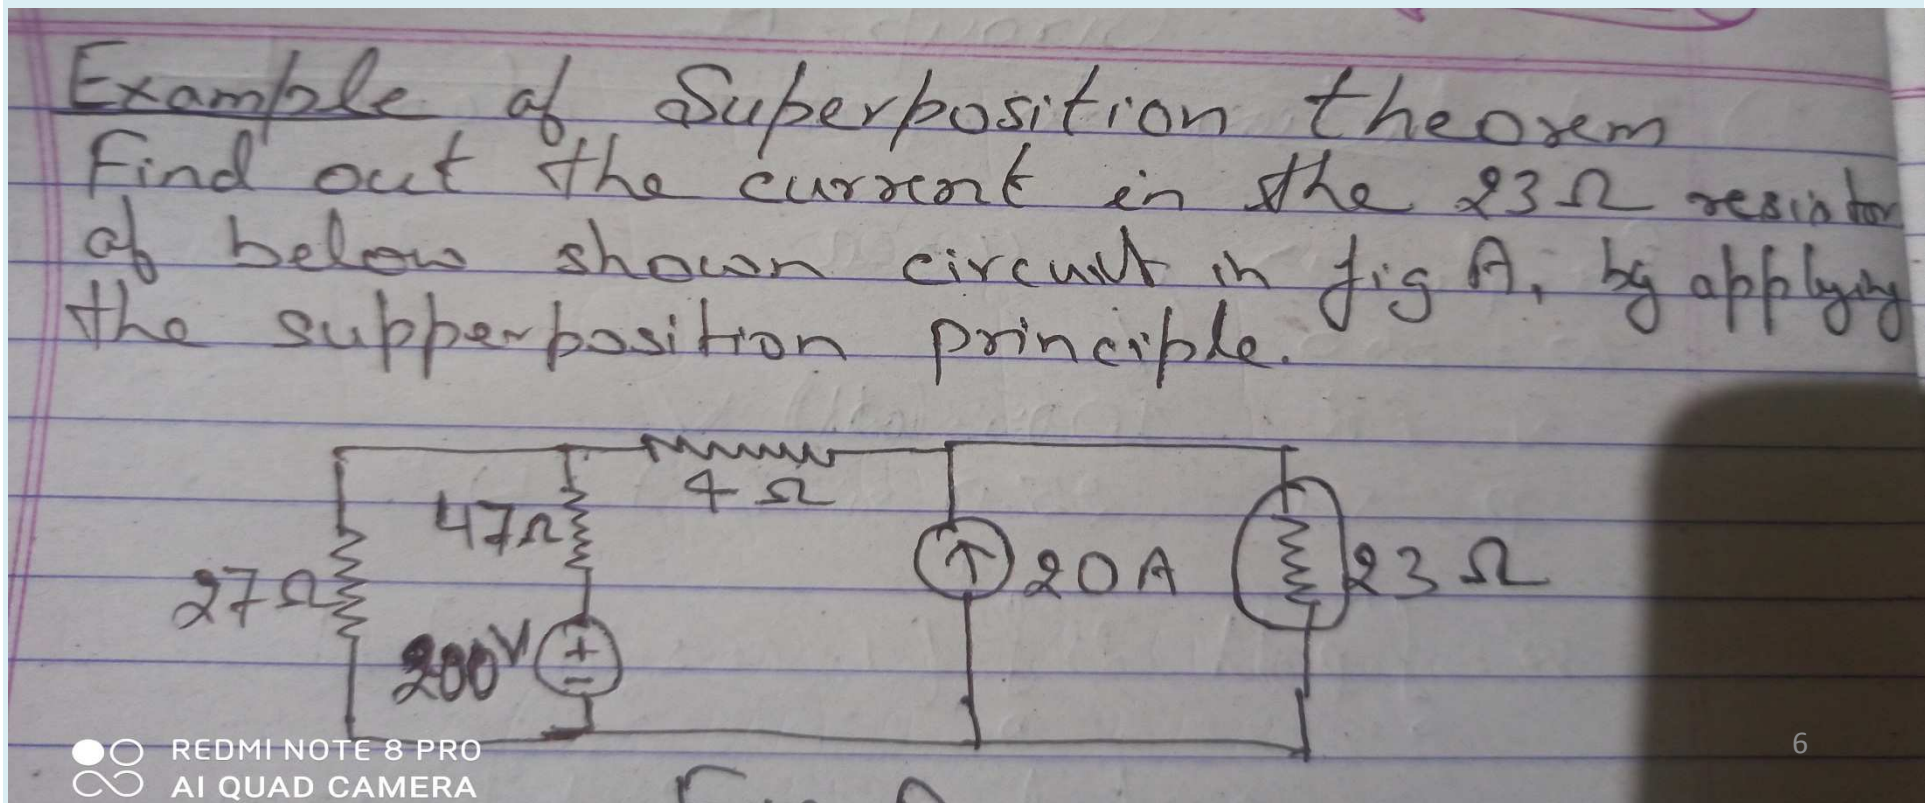 Example of Superposition theorem
Find out the current in the 23Ω resistor
of below shown circuit in fig A, by applying
the supperposition principle.
4Ω
47Ω
27Ω
20A
23Ω
200V
+
-
REDMI NOTE 8 PRO
AI QUAD CAMERA
6